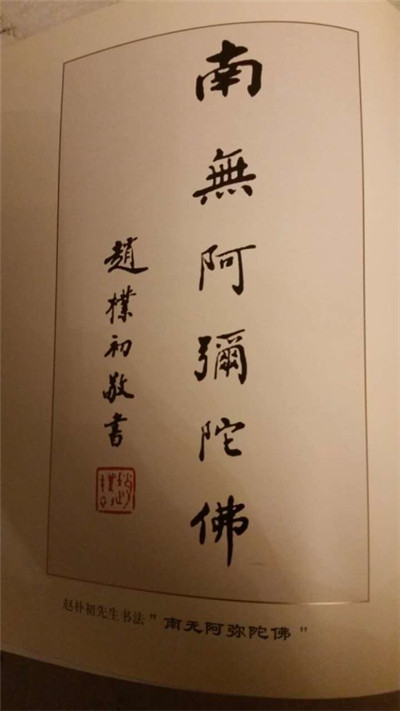 南無阿彌陀佛
趙樸初敬書
赵朴初先生书法”南无阿弥陀佛”